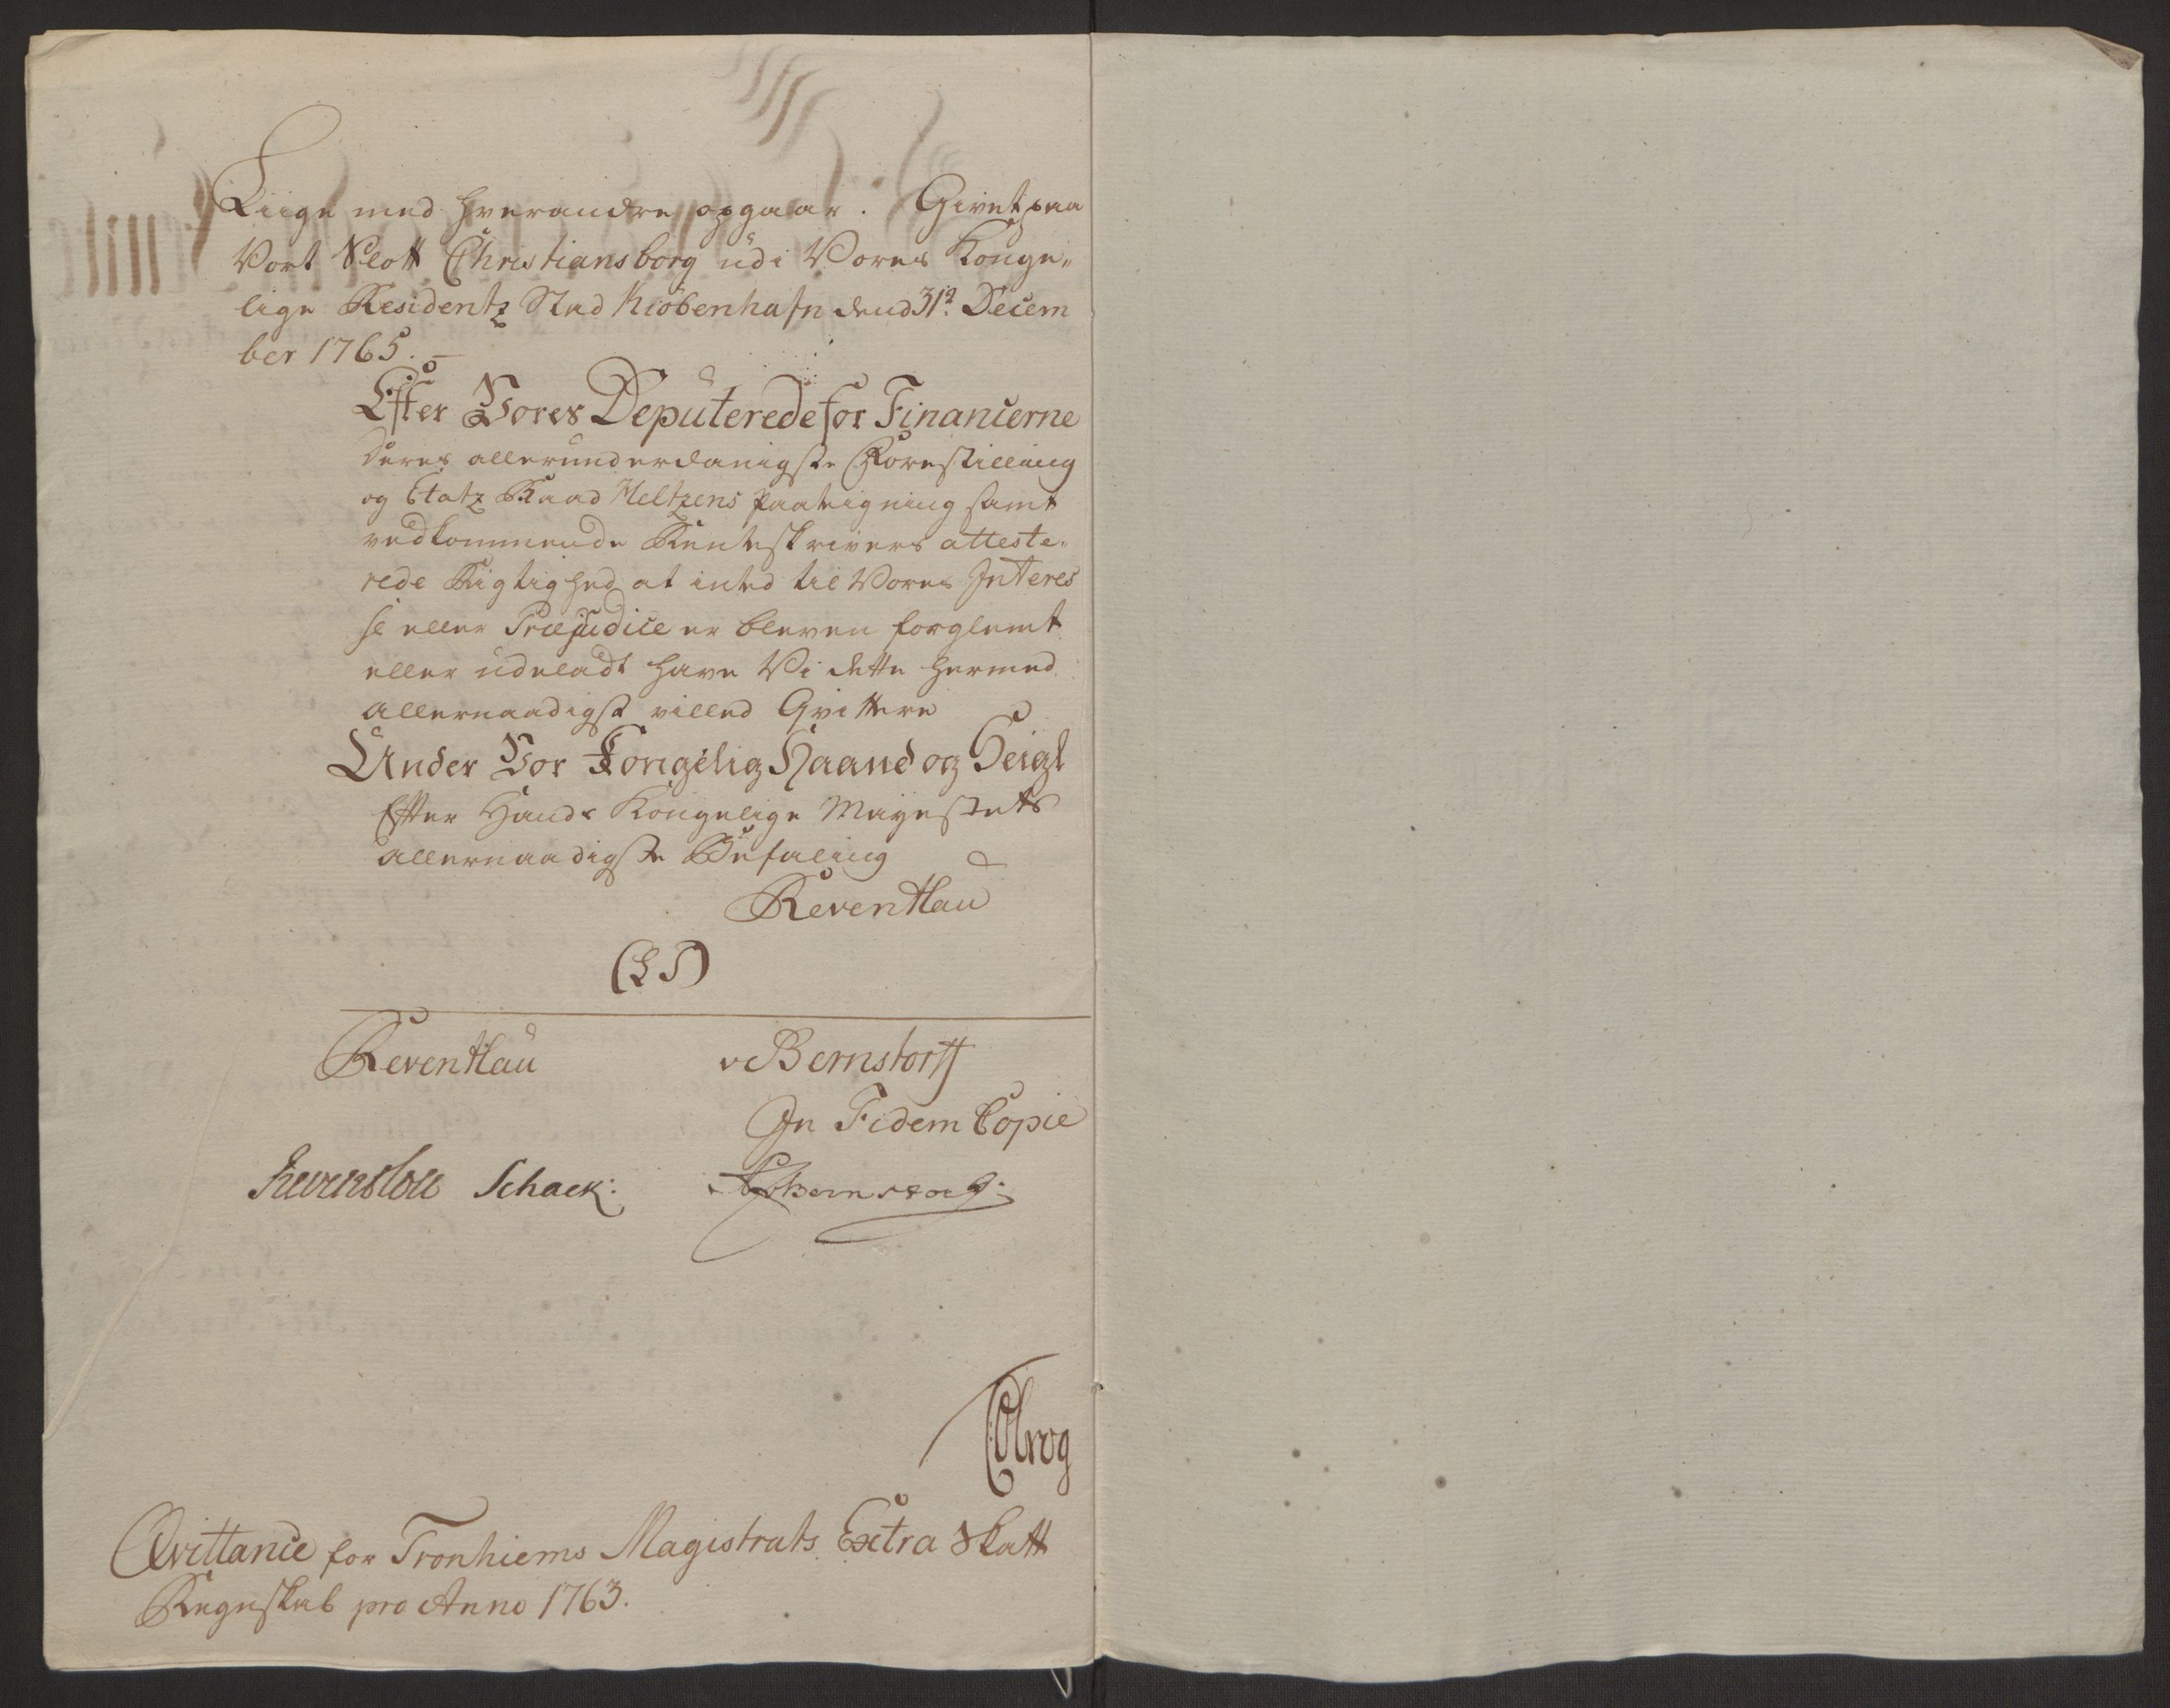 Liige med hverandre opgaar. Givet paa
Vort Slott Christiansborg udi Vores Konge-
lige Residentz Stad Kiöbenhafn dend 31te Decem
ber 1765.
Efter Vores Deputerede for Financerne
Deres allerunderdanigste Forestilling
og Etatz Raad Heltzens Paateigning samt
vedkommende Renteskrivers atteste-
rede Rigtighed at inted til Vores Interes
se eller Præjudice er bleven forglemt
eller udeladt have Vi dette hermed
allernaadigst villed Qvittere
Under Vor Kongelig Haand og Seigl
Efter Hands Kongelige Mayestets
allernaadigste Befaling
Reventlau
(LS)
Reventlau v Bernstorff
In Fidem Copie
Reventlou Schack: Bernstorff.
Qvittance for Tronhiems Magistrats Extra Skatt
Regnskab pro Anno 1763.